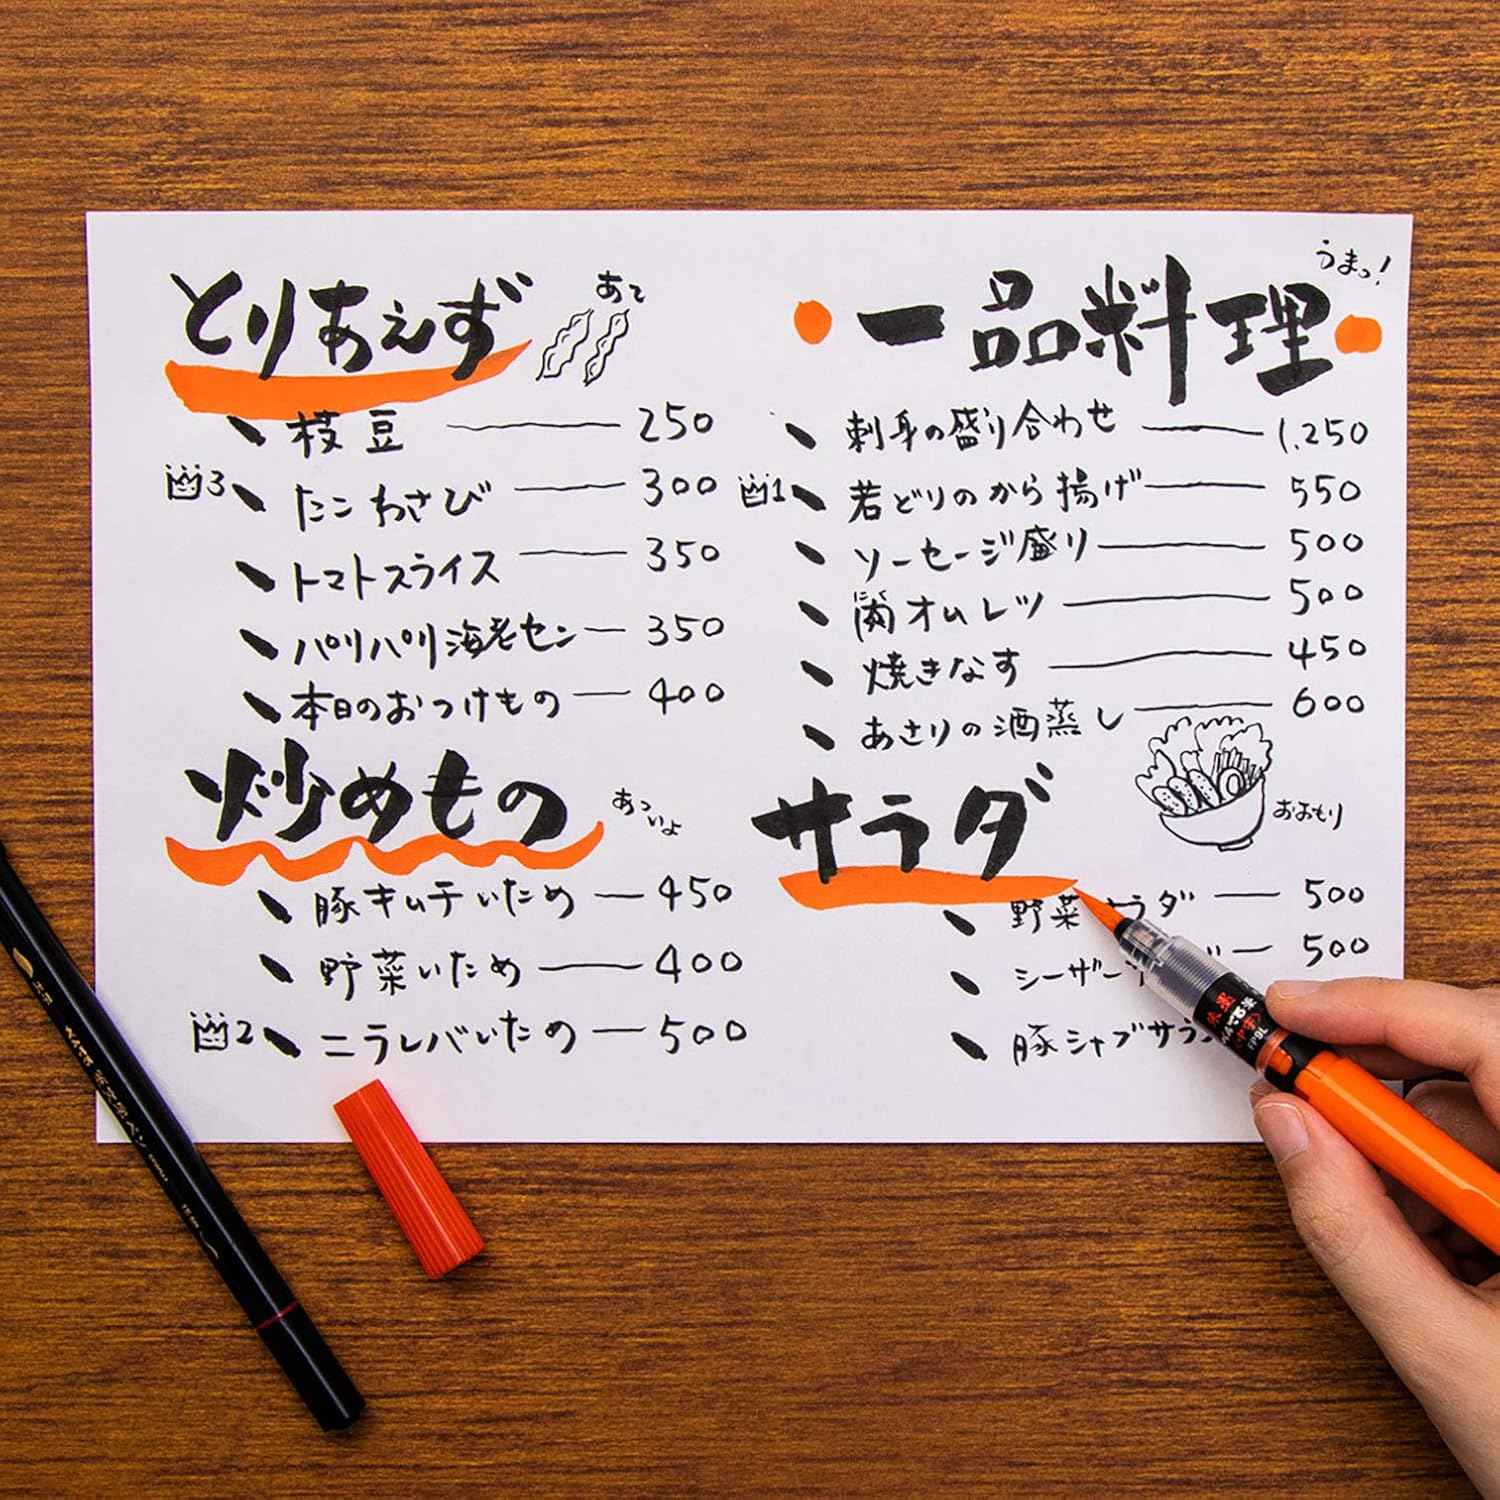 とりあえず
あて
枝豆 250
3 たこわさび 300
トマトスライス 350
パリパリ海老セン 350
本日のおつけもの 400
炒めもの
あっいよ
豚キムチいため 450
野菜いため 400
2 ニラレバいため 500
一品料理
うまっ!
刺身の盛り合わせ 1.250
1 若どりのから揚げ 550
ソーセージ盛り 500
にく
肉オムレツ 500
焼きなす 450
あさりの酒蒸し 600
サラダ
おおもり
野菜サラダ 500
シーザー 500
豚シャブサラ
筆文字ペン